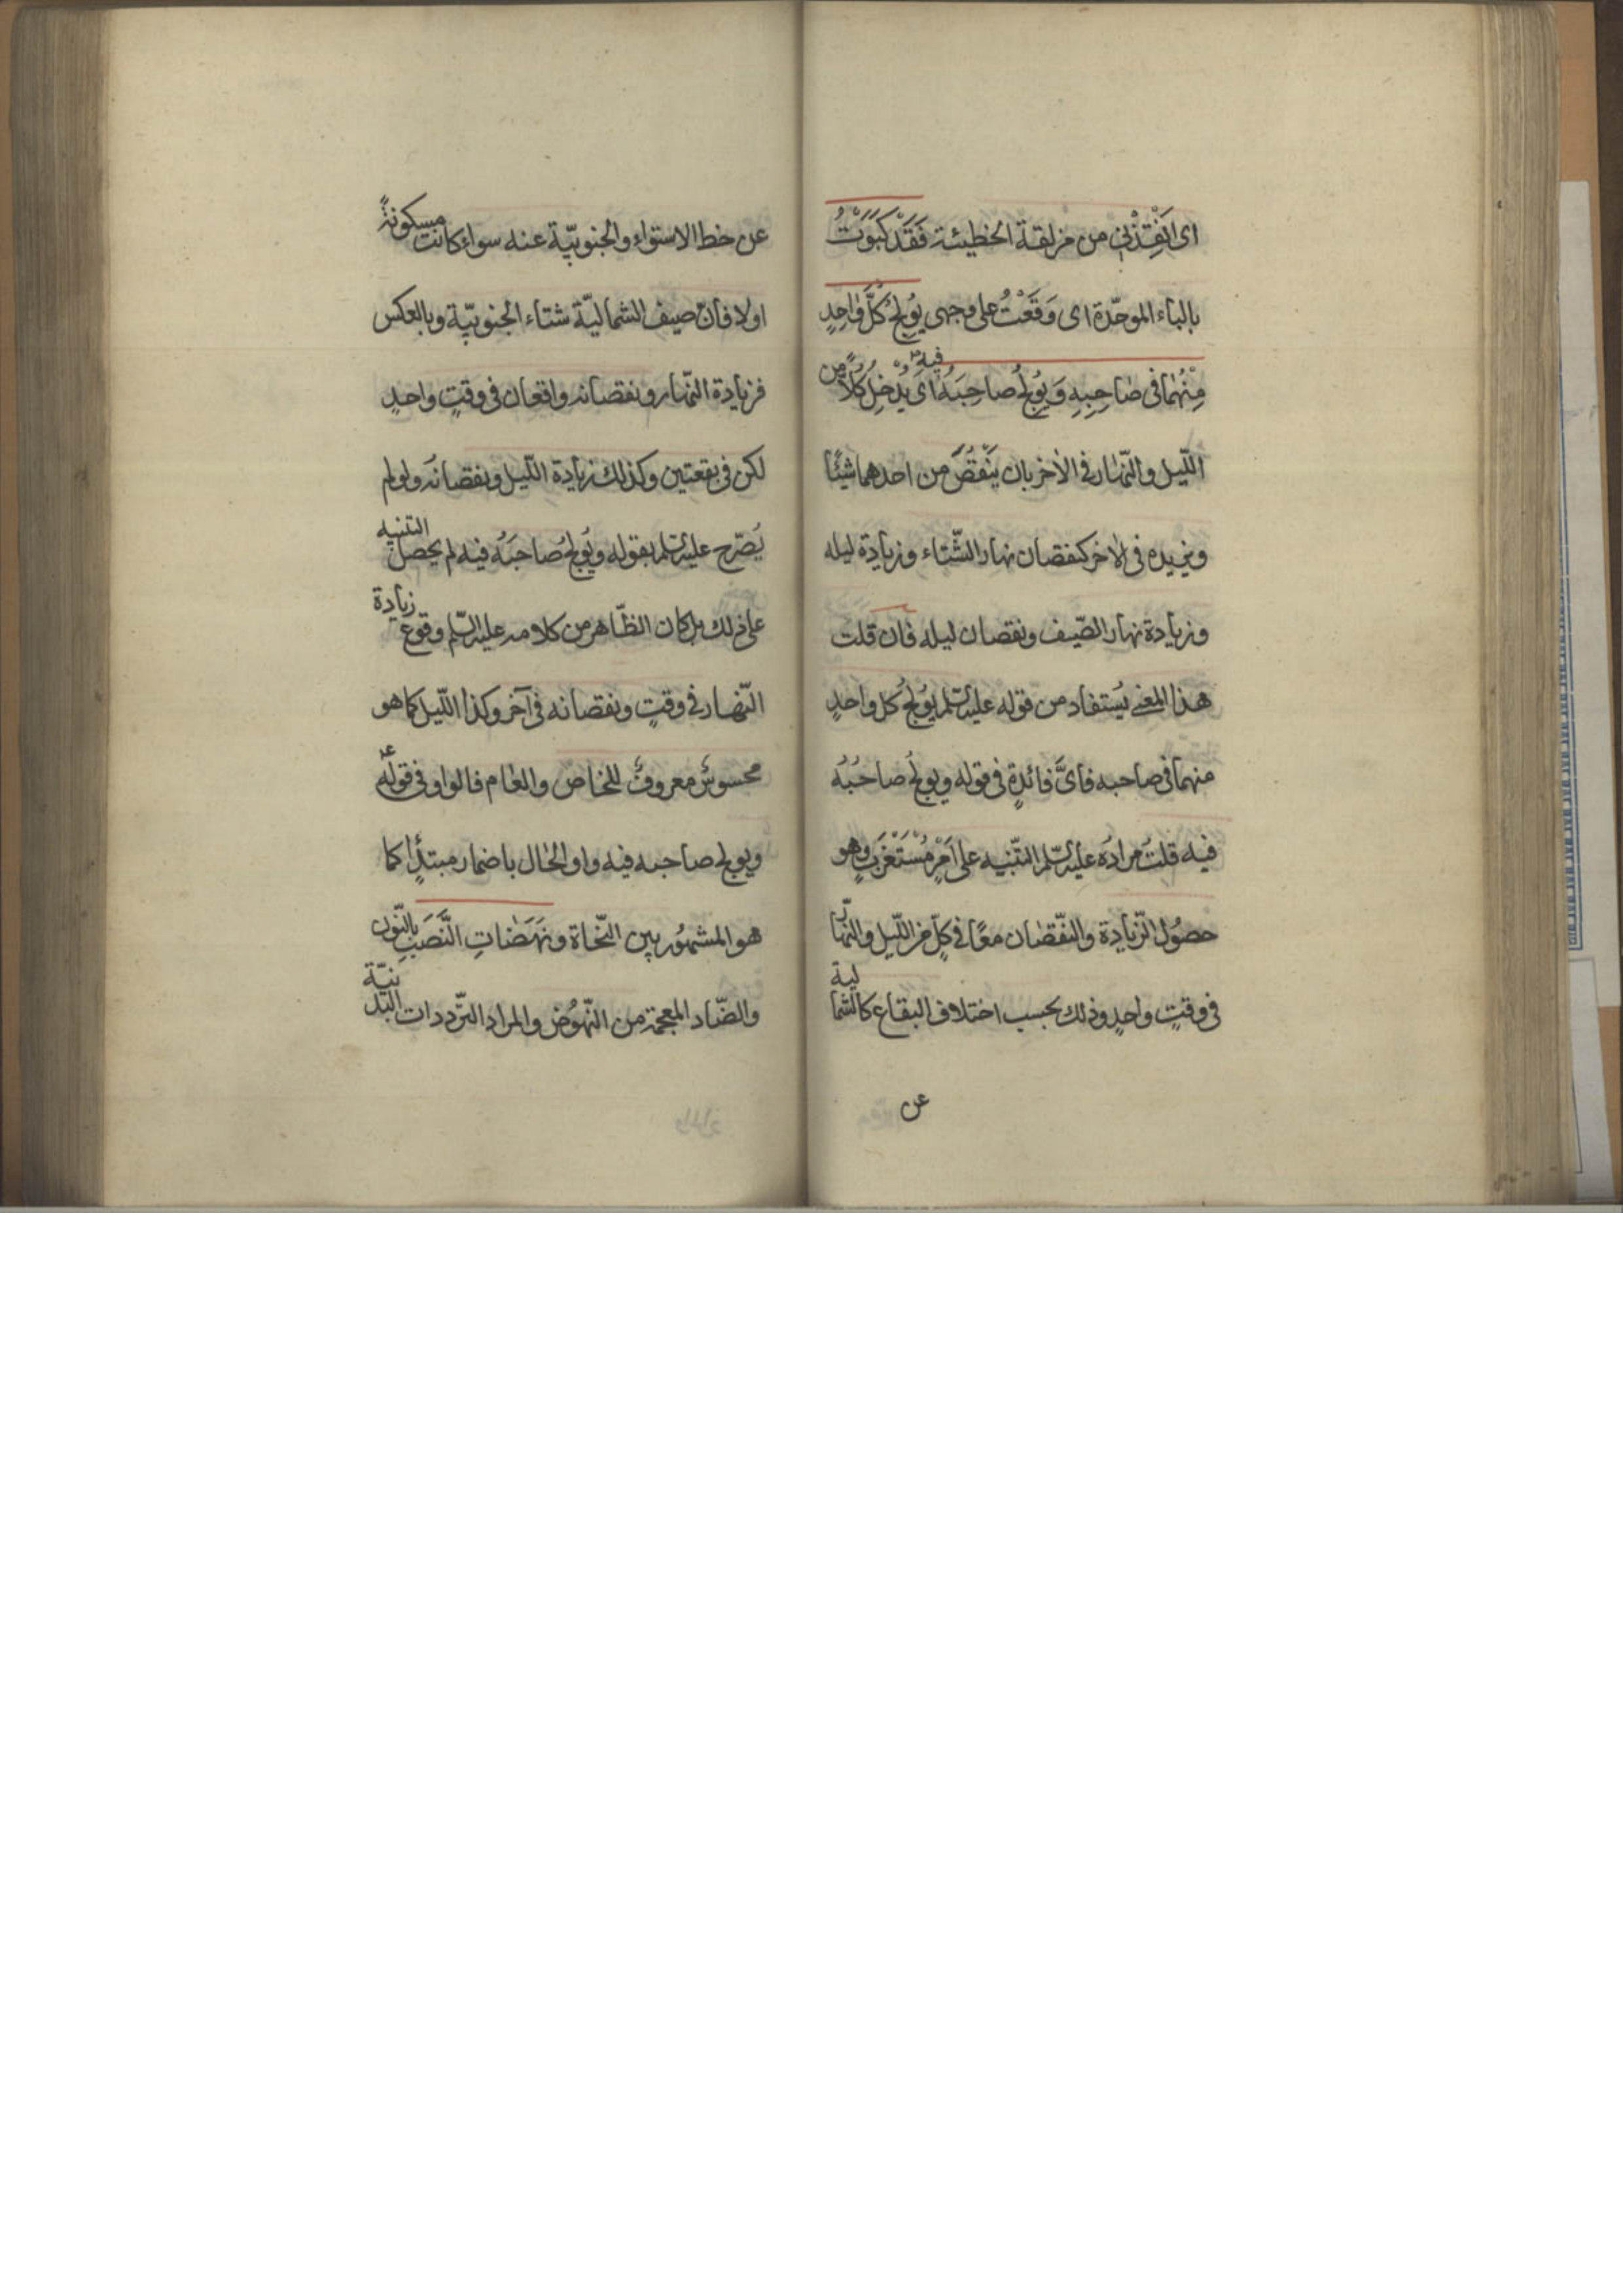 اى اَنْقِذْنى من مزلقة الخطيئة فَقَدْ كَبَوْتُ
بالباء الموحّدة اى وَقَعْتُ على وجهى يُولِجُ كُلَّ وٰاحِدٍ
مِنْهُمٰا فى صٰاحِبِهِ وَيُولِجُ صاحِبَهُ فيه اى يُدْخِلُ كُلاًّ من
اللّيل والنّهار فى الأخر بان يَنْقُصَ من احدهما شيئًا
ويزيده فى الاخر كنقصان نهار الشّتاء وزيادة ليله
وزيادة نهار الصّيف ونقصان ليله فان قلت
هذا المعنى يُستفاد من قوله عليه السّلم يُولجُ كل واحدٍ
منهما فى صاحبه فاىّ فائدةٍ فى قوله ويولجُ صاحبُهُ
فيه قلتُ مرادُه عليه السّلم التّنبيه على اَمْرٍ مُسْتَغْرَبٍ وهو
حصُول الزّيادة والنّقصان معًا فى كلٍّ من اللّيل والنّهار
فى وقتٍ واحدٍ وذلك بحسب اختلاف البقاع كالشمالية
عن
عن خط الاستواء والجنوبيّة عنه سواء كانت مسكونةً
اولا فانّ صيف الشماليّة شتاء الجنوبيّة وبالعكس
فزيادة النّهار ونقصانه واقعان فى وقتٍ واحدٍ
لكن فى بقعتين وكذلك زيادة اللّيل ونقصانُه ولو لم
يُصّرح عليه السّلم بقوله ويُولجُ صاحبَهُ فيه لم يحصل التنبيه
على ذلك بل كان الظّاهر من كلامه عليه السّلم وقوع زيادة
النّهار فى وقتٍ ونقصانه فى آخر وكذا اللّيل كما هو
محسوسٌ معروفٌ للخاص والعٰام فالواو فى قوله ع
ويولج صاحبه فيه واو الحٰال باضمار مبتدأٍ كما
هو المشهُور بين النّحاة ونَهَضٰاتِ النَّصَبِ بالنّون
والضّاد المعجمة من النّهُوض والمراد التّرددات البدنيّة